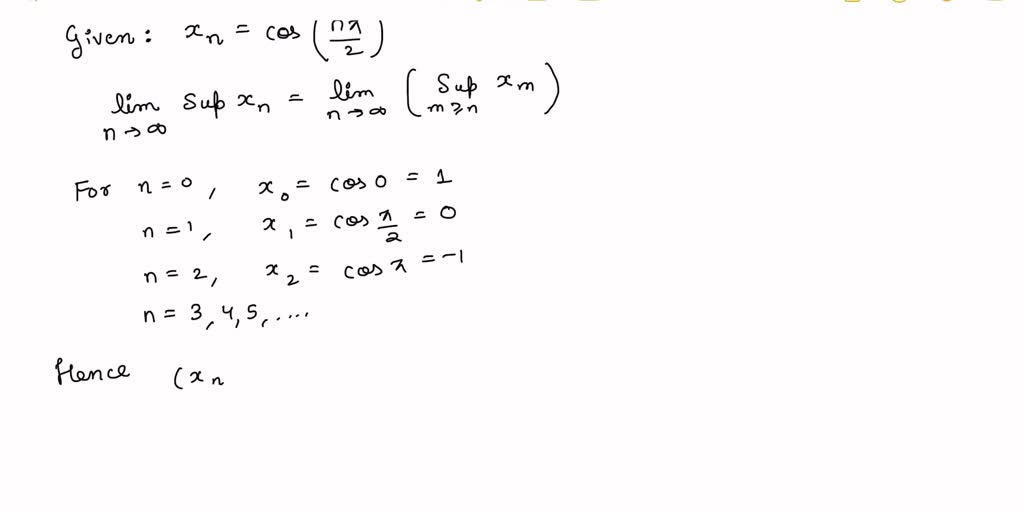 Given: xₙ = cos (nπ/2)
lim n→∞ Sup xₙ = lim n→∞ (Sup m⩾n xₘ)
For n = 0, x₀ = cos 0 = 1
n = 1, x₁ = cos π/2 = 0
n = 2, x₂ = cos π = -1
n = 3, 4, 5, ....
Hence (xₙ